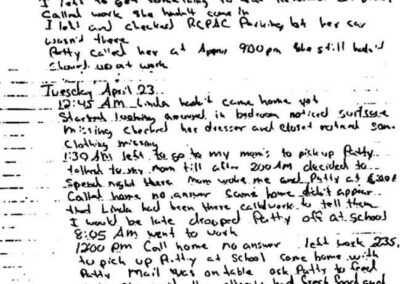 I left to get something to eat
Called work she hadn't come in
I left and checked RCPAC Parking lot her car
wasn't there
Patty called her at Approx 900pm she still hadn't
showed up at work
Tuesday April 23
12:45 AM Linda hadn't came home yet
Started looking around in bedroom noticed suitcase
missing checked her dresser and closet noticed some
clothing missing
1:30 AM left to go to my mom's to pick up Patty
talked to my mom till after 200 AM decided to
spend night there mom woke me and Patty at
Called home no answer Came home didn't appear
that Linda had been there called work to tell them
I would be late dropped Patty off at school
8:05 AM went to work
1200 PM Call home no answer left work 235
to pick up Patty at school came home with
Patty Mail was on table ask Patty to feed
had fresh food and